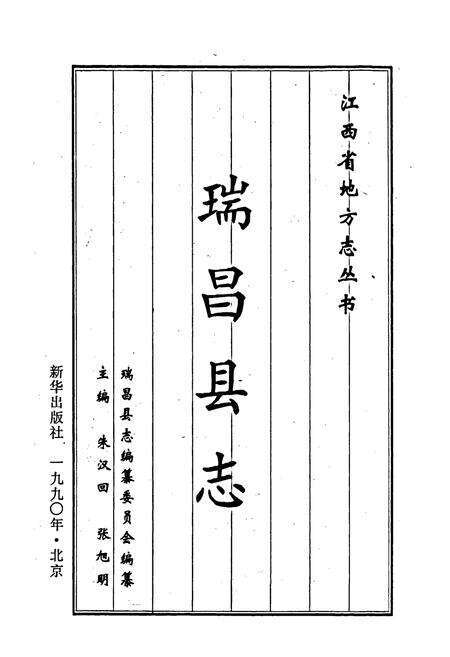 江西省地方志丛书
瑞昌县志
瑞昌县志编纂委员会编纂
主编 朱汉回 张旭明
新华出版社 一九九〇年·北京